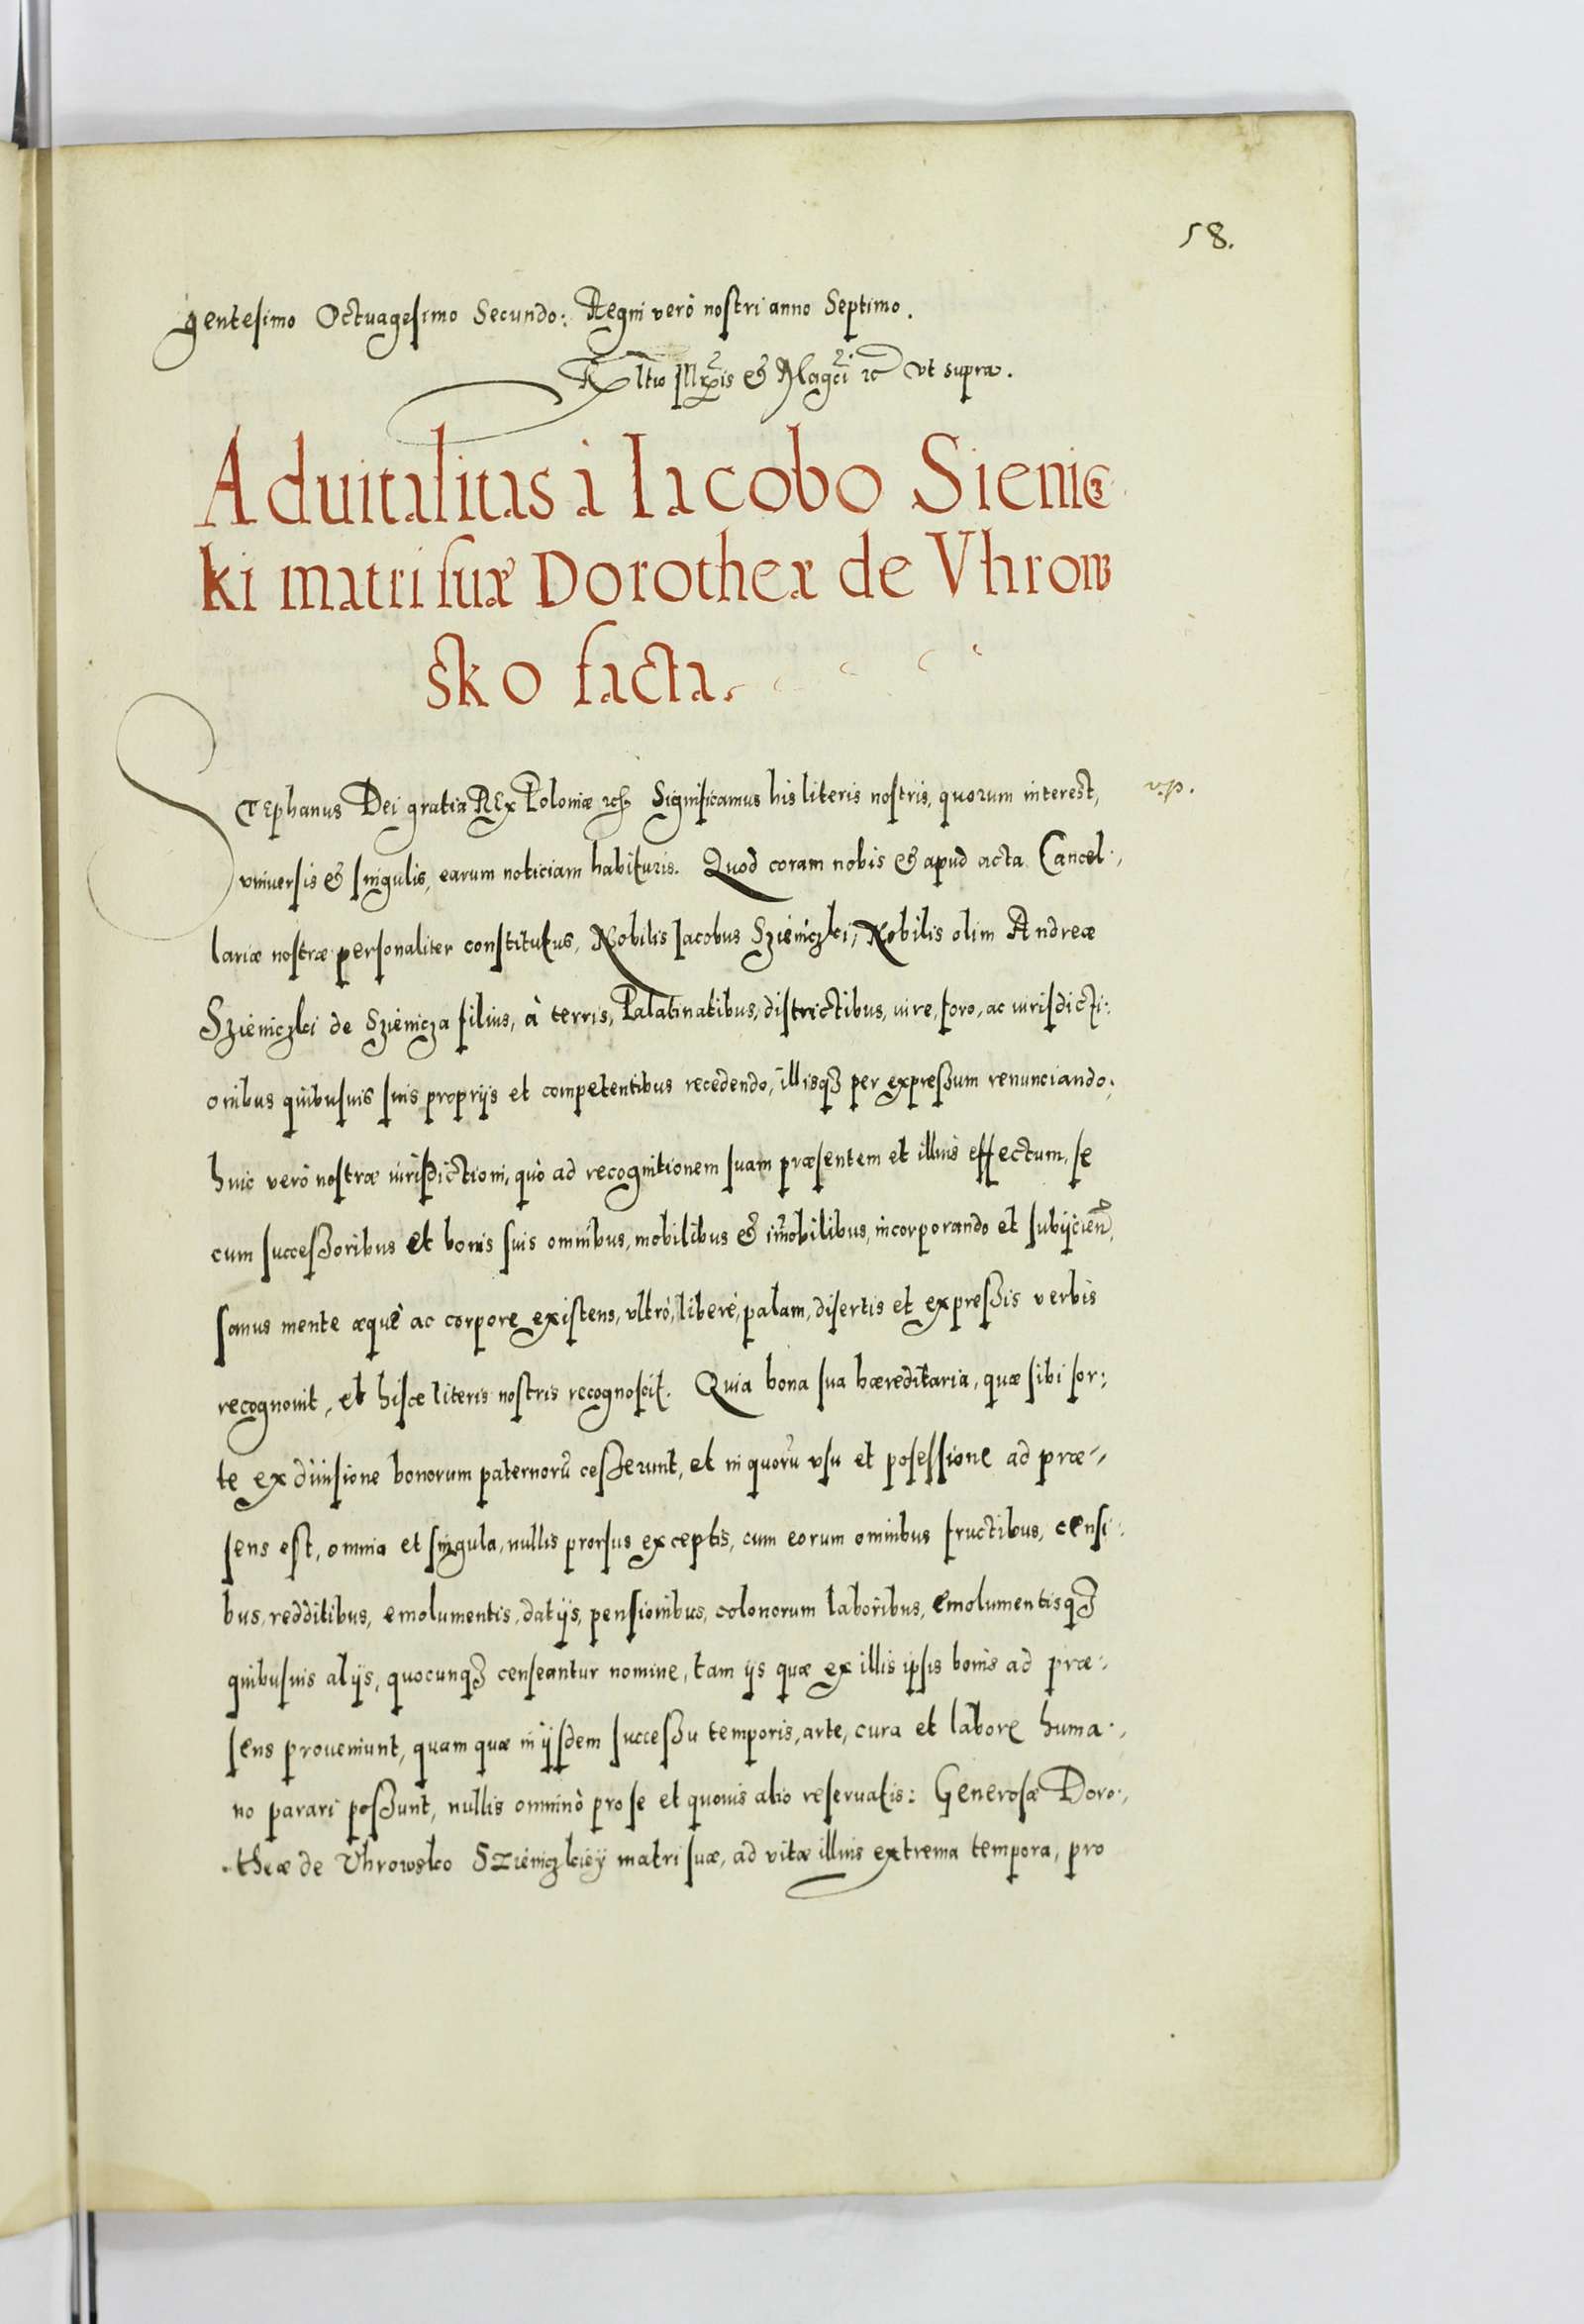 58.
gentesimo Octuagesimo Secundo: Regni verò nostri anno Septimo.
Rltio Illris & Magci etc Vt supra.
Aduitalitas à Iacobo Sienicz
ki matri suæ Dorotheæ de Vhrow
sko facta.
STEphanus Dei gratia REx Poloniæ etc. Significamus his literis nostris, quorum interest,
vniuersis & singulis, earum noticiam habituris. Quod coram nobis & apud acta Cancel:,
lariæ nostræ personaliter constitutus, Nobilis Iacobus Szieniczki, Nobilis olim Andreæ
Sziéniczki de Sziénicza filius, à terris, Palatinatibus, districtibus, iure, foro, ac iurisdicti:
onibus quibusuis suis proprijs et competentibus recedendo, illisq3 per expreßum renunciando:,
huic verò nostræ iurisdictioni, quò ad recognitionem suam præsentem et illius effectum, se
cum succeßoribus et bonis suis omnibus, mobilibus & im̄obilibus, incorporando et subijcien͂,
sanus mente æquè ac corpore existens, vltrò, liberè, palam, disertis et expreßis verbis
recognouit, et hisce literis nostris recognoscit. Quia bona sua hæreditaria, quæ sibi sor:,
te ex diuisione bonorum paternorū ceßerunt, et in quorū vsu et posessione ad præ:,
sens est, omnia et singula, nullis prorsus exceptis, cum eorum omnibus fructibus, censi:
bus, redditibus, emolumentis, datijs, pensionibus, colonorum laboribus, emolumentisq3
quibusuis alijs, quocunq3 censeantur nomine, tam ijs quæ ex illis ipsis bonis ad præ:,
sens proueniunt, quam quæ in ijsdem succeßu temporis, arte, cura et labore huma:,
no parari poßunt, nullis omninò pro se et quouis alio reseruatis: Generosæ Doro:,
theæ de Vhrowsko Sziéniczkiéÿ matri suæ, ad vitæ illius extrema tempora, pro